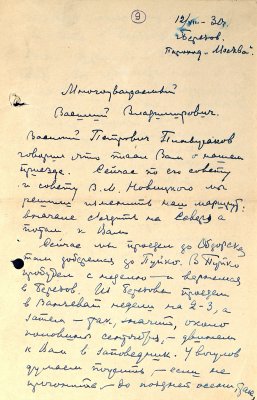 9
12/VII - 30г.
г. Березов.
Пароход - Москва
Многоуважаемый
Василий Владимирович.
Василий Петрович
говорил что писал Вам о нашем
приезде. Сейчас по его совету
и совету В. М. Новицкого мы
решили изменить наш маршрут:
вначале съездить на Север а
потом к Вам
Сейчас мы проедем до Обдорска
там доберемся до Пуйко. В Пуйко
пробудем с неделю - и вернемся
в Березов. Из Березова проедем
в недели на 2-3, а
затем - так, значит, около
половины сентября, - двинем
к Вам в заповедник. У вогулов
думаем пожить - если не
прогоните - до поздней осени